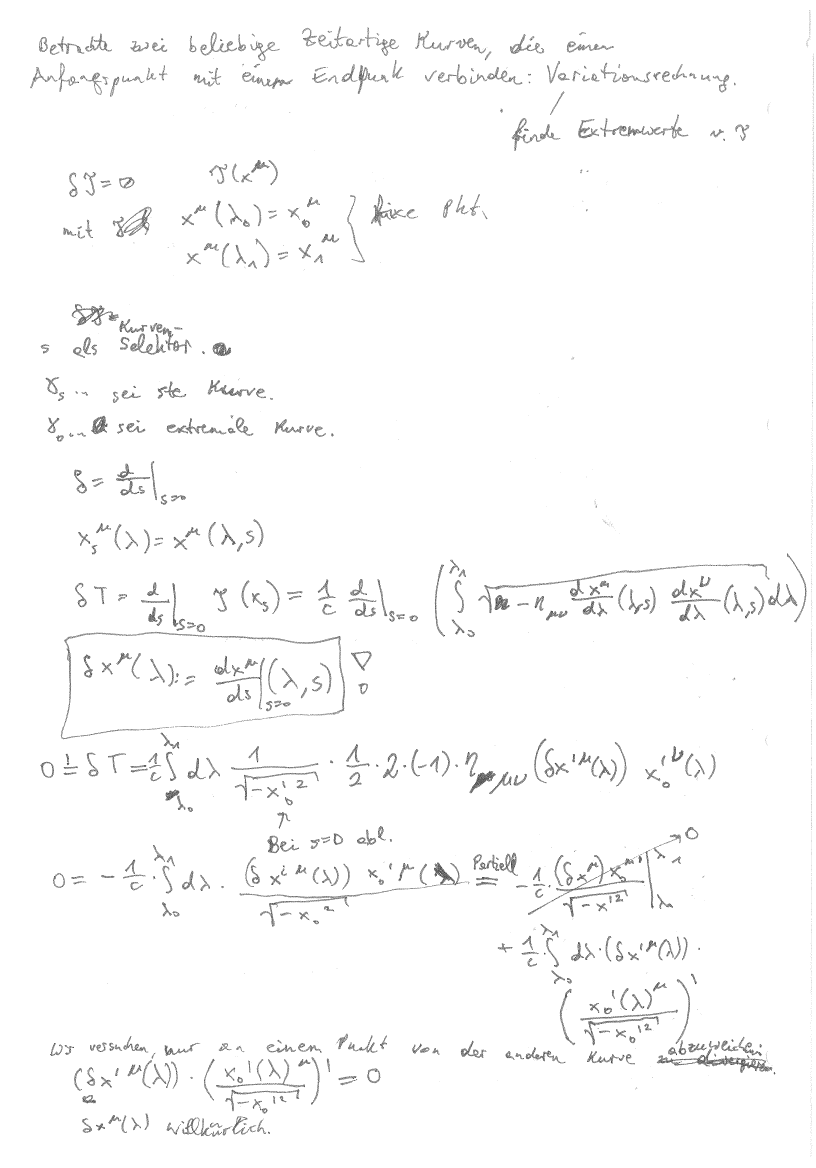 Betrachte zwei beliebige zeitartige Kurven, die einen
Anfangspunkt mit einem Endpunk verbinden: Variationsrechnung.
finde Extremwerte v. T
δT = 0 T(x^μ)
mit x^μ(λ₀) = x₀^μ } fixe Pkt.
x^μ(λ₁) = x₁^μ
Kurven-
s als Selektor.
γₛ ... sei ste Kurve.
γ₀ ... sei extremale Kurve.
δ = d/ds |ₛ₌₀
xₛ^μ(λ) = x^μ(λ,s)
δT = d/ds |ₛ₌₀ T(xₛ) = 1/c d/ds |ₛ₌₀ ( ∫_λ₀^λ₁ √(-η_μν dx^μ/dλ (λ,s) dx^ν/dλ (λ,s)) dλ )
δx^μ(λ) := dx^μ/ds |ₛ₌₀ (λ,s) !
0 != δT = 1/c ∫_λ₀^λ₁ dλ 1/√(-x₀'²) · 1/2 · 2 · (-1) · η_μν (δx'^μ(λ)) x₀'^ν(λ)
↑
Bei s=0 abl.
0 = -1/c · ∫_λ₀^λ₁ dλ · (δx'^μ(λ)) x₀'^μ(λ) / √(-x₀'²) =^Partiell -1/c · (δx^μ) x₀^μ' / √(-x'²) |_λ₀^λ₁ → 0
+ 1/c · ∫_λ₀^λ₁ dλ · (δx'^μ(λ)) ·
( x₀'(λ)^μ / √(-x₀'²) )'
Wir versuchen, nur an einem Punkt von der anderen Kurve abzuweichen
(δx'^μ(λ)) · ( x₀'(λ)^μ / √(-x₀'²) )' = 0
δx^μ(λ) willkürlich.